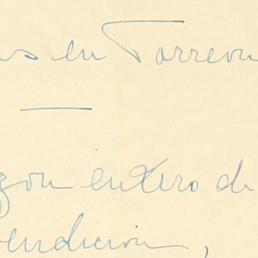 s en Torreon
gon entero de
endicion,